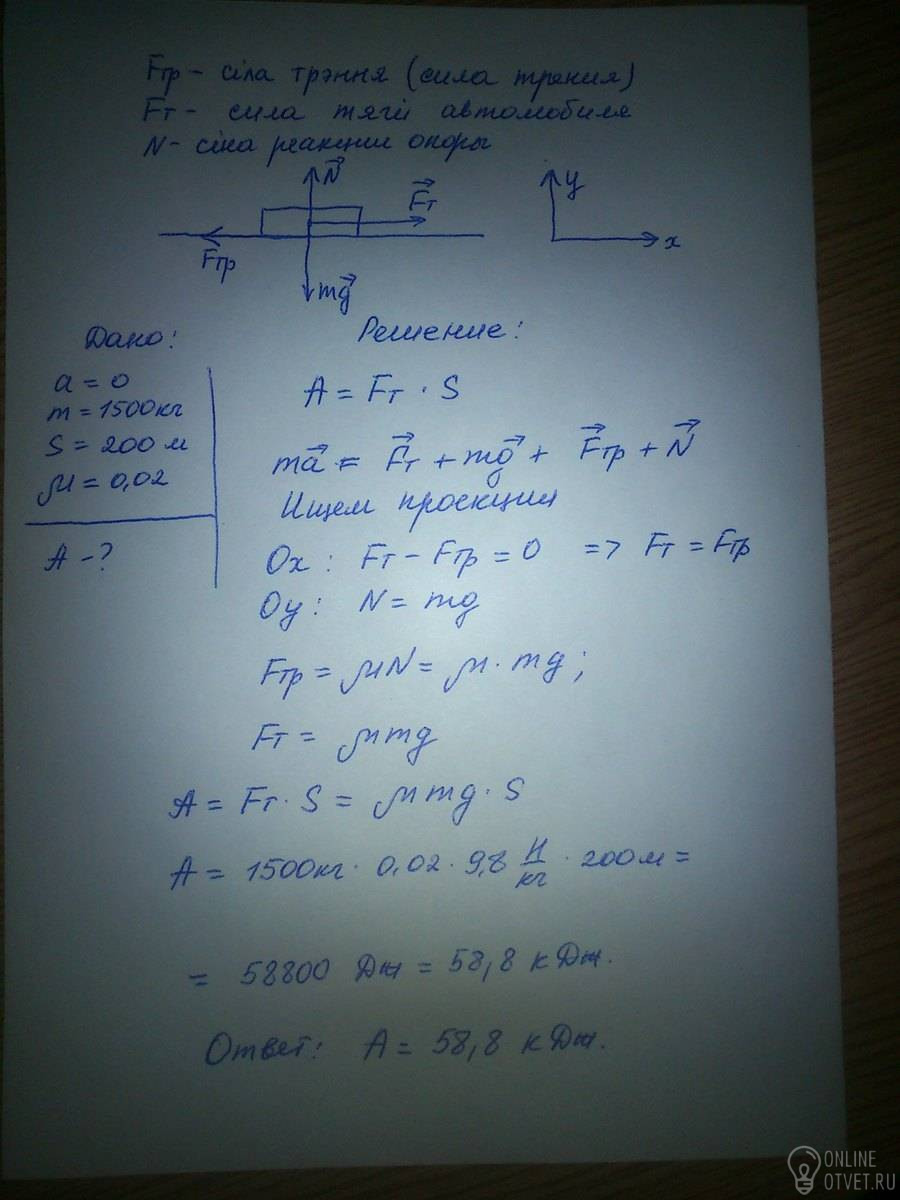 Fтр - сіла трэння (сила трения)
Fт - сила тягі автомобиля
N - сіла реакции опоры
N
Fт
y
x
Fтр
mg
Дано:
Решение:
a = 0
m = 1500кг
S = 200 м
μ = 0,02
A - ?
A = Fт · S
ma = Fт + mg + Fтр + N
Ищем проекции
Ox: Fт - Fтр = 0 => Fт = Fтр
Oy: N = mg
Fтр = μN = μ · mg;
Fт = μmg
A = Fт · S = μmg · S
A = 1500кг · 0,02 · 9,8 Н/кг · 200м =
= 58800 Дж = 58,8 кДж.
Ответ: A = 58,8 кДж.
ONLINE
OTVET.RU